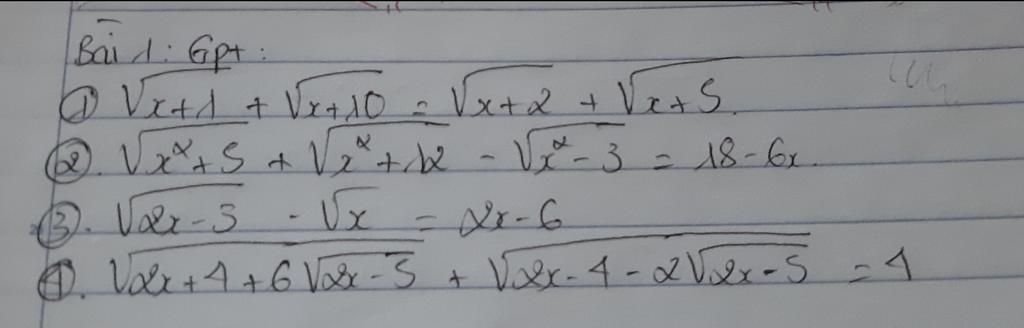 Bài 1: Gpt:
① √(x+1) + √(x+10) = √(x+2) + √(x+5)
②. √(x²+5) + √(x²+12) - √(x²-3) = 18-6x.
③. √(2x-3) - √x = 2x-6
④. √(2x+4+6√(2x-5)) + √(2x-4-2√(2x-5)) = 4